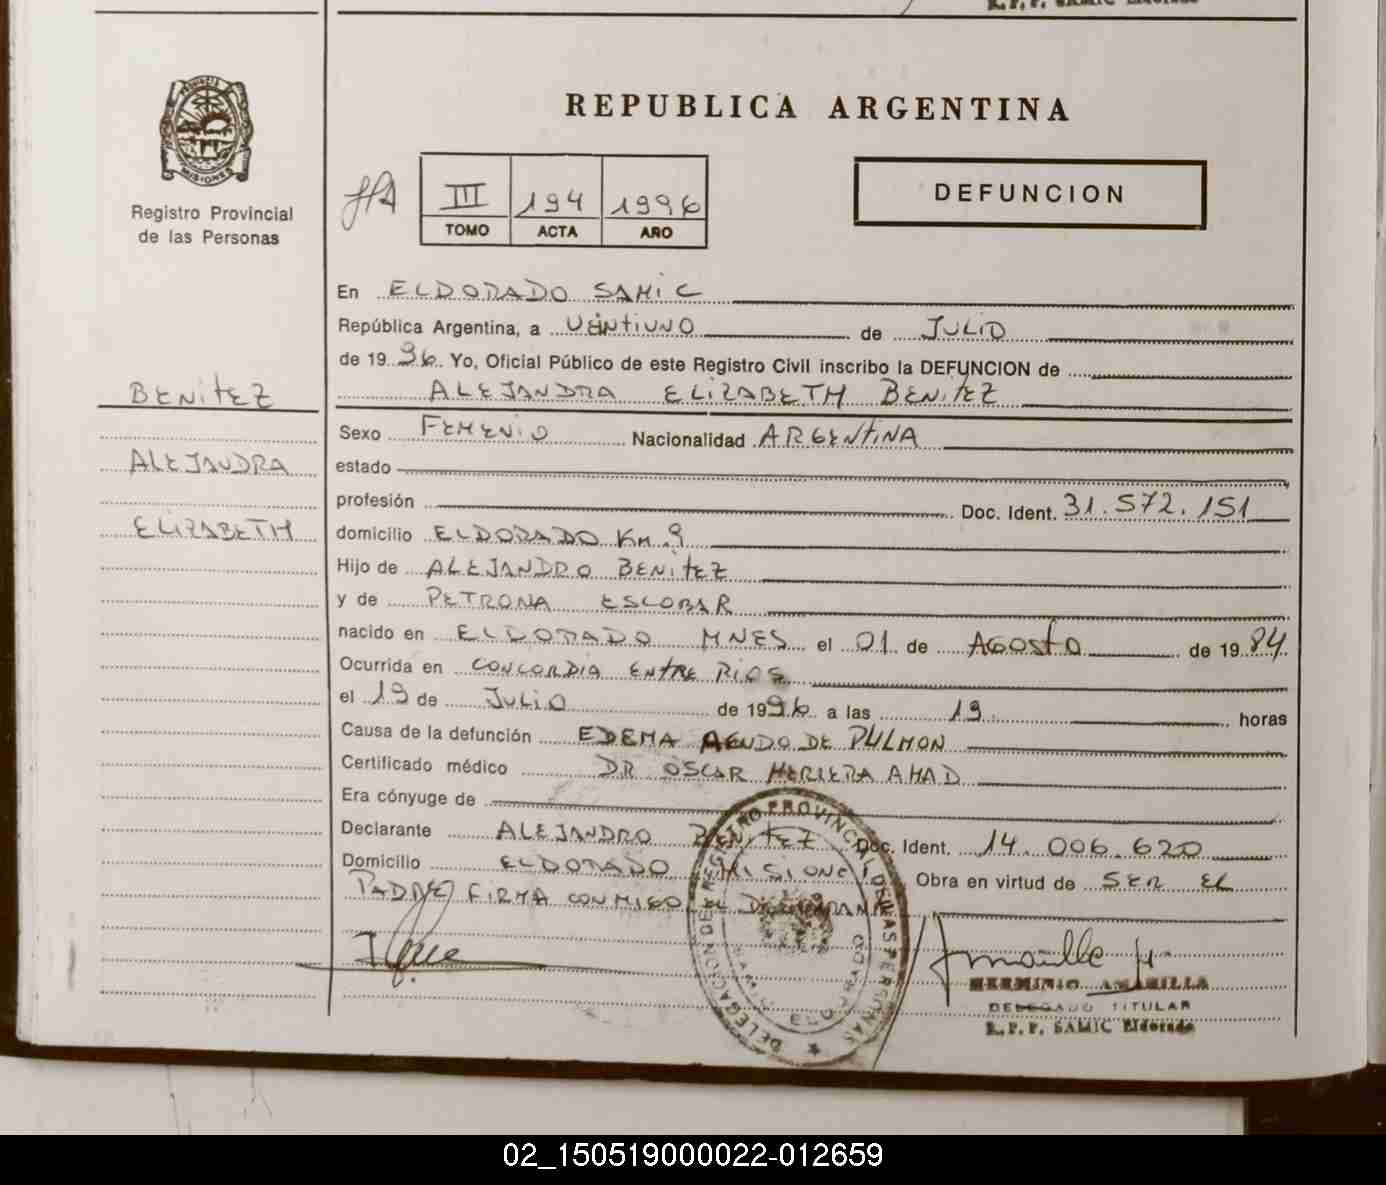 R.P.P. SAMIC Eldorado
PROVINCIA DE
MISIONES
Registro Provincial
de las Personas
REPUBLICA ARGENTINA
III 194 1996
TOMO ACTA AÑO
DEFUNCION
En ELDORADO SAMIC
República Argentina, a VEINTIUNO de JULIO
de 1996. Yo, Oficial Público de este Registro Civil inscribo la DEFUNCION de
BENITEZ
ALEJANDRA ELIZABETH BENITEZ
Sexo FEMENIO Nacionalidad ARGENTINA
ALEJANDRA
estado
profesión Doc. Ident. 31.572.151
ELIZABETH
domicilio ELDORADO Km.9
Hijo de ALEJANDRO BENITEZ
y de PETRONA ESCOBAR
nacido en ELDORADO MNES el 01 de AGOSTO de 1984
Ocurrida en CONCORDIA ENTRE RIOS
el 19 de JULIO de 1996 a las 19 horas
Causa de la defunción EDEMA AGUDO DE PULMON
Certificado médico DR OSCAR HERRERA AHAD
Era cónyuge de
Declarante ALEJANDRO BENITEZ Doc. Ident. 14.006.620
Domicilio ELDORADO MISIONES Obra en virtud de SER EL
PADRE FIRMA CONMIGO EL DECLARANTE
DELEGACION DE REGISTRO PROVINCIAL DE LAS PERSONAS
SAMIC ELDORADO
HERMINIO AMARILLA
DELEGADO TITULAR
R.P.P. SAMIC Eldorado
02_150519000022-012659